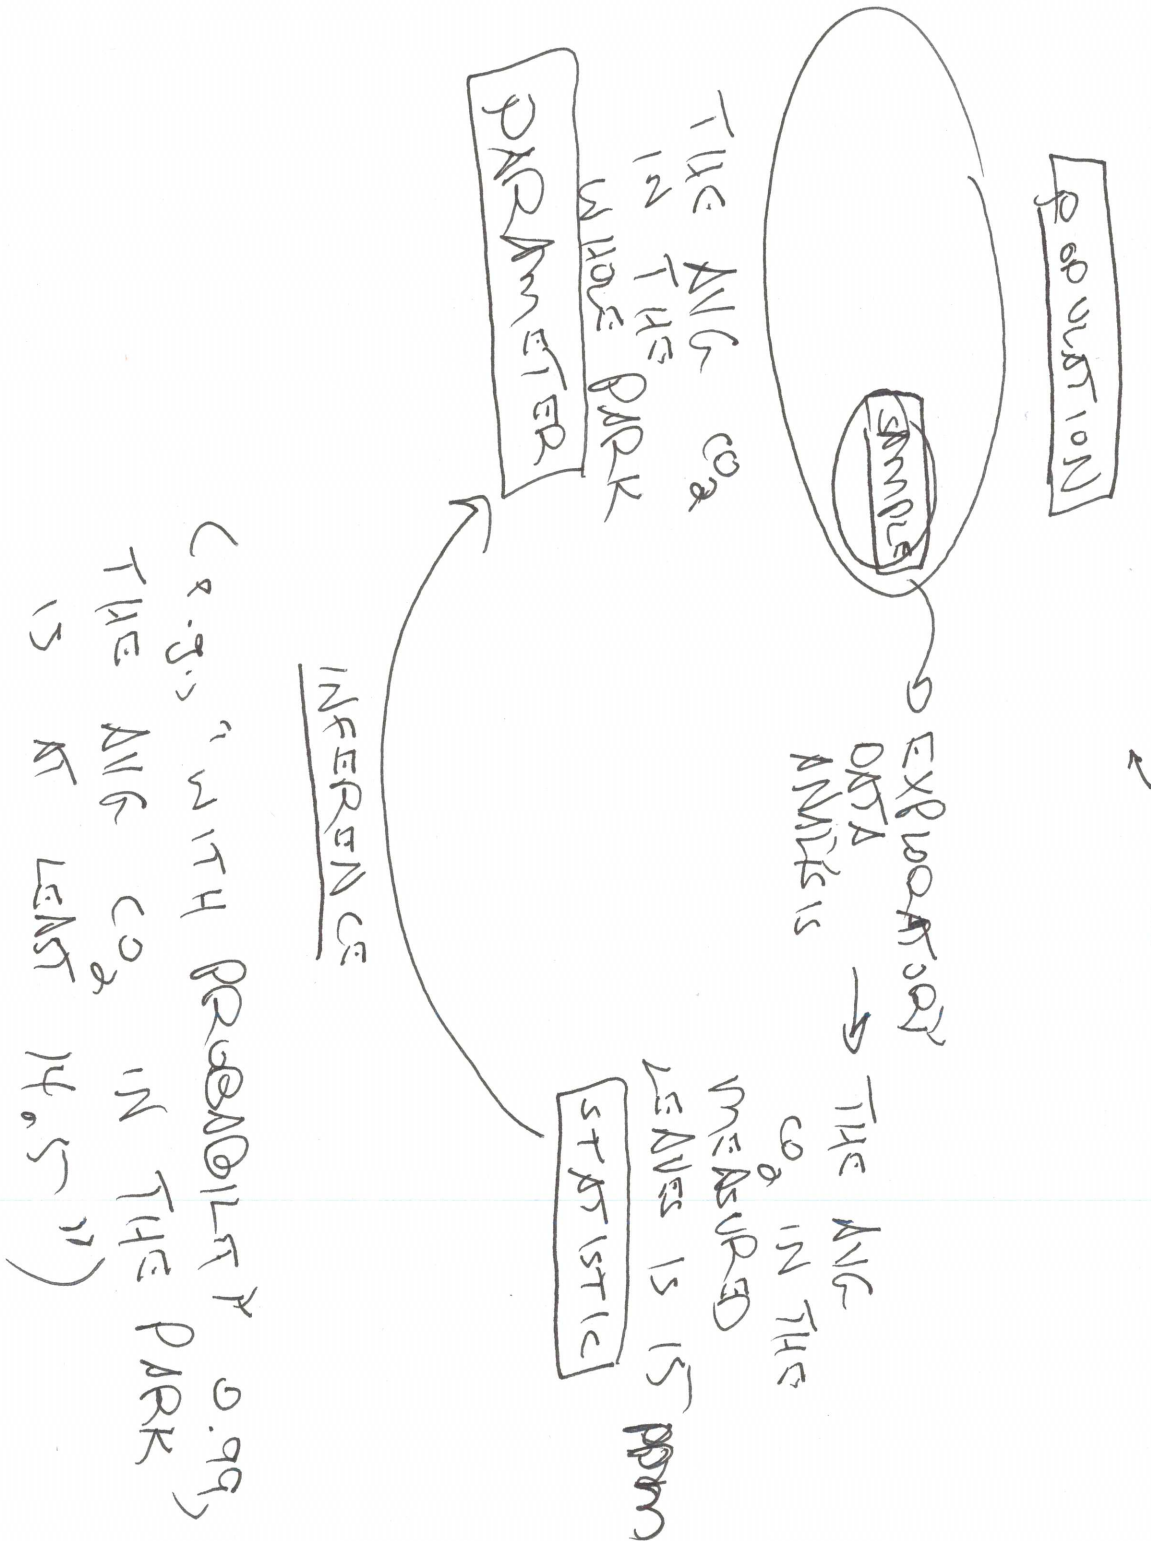 POPULATION
SAMPLE
EXPLORATORY
DATA
ANALYSIS
THE AVG
CO2 IN THE
MEASURED
LEAVES IS 15 ppm
STATISTIC
THE AVG CO2
IN THE
WHOLE PARK
PARAMETER
INFERENCE
(e.g., "WITH PROBABILITY 0.99,
THE AVG CO2 IN THE PARK
IS AT LEAST 14.5")